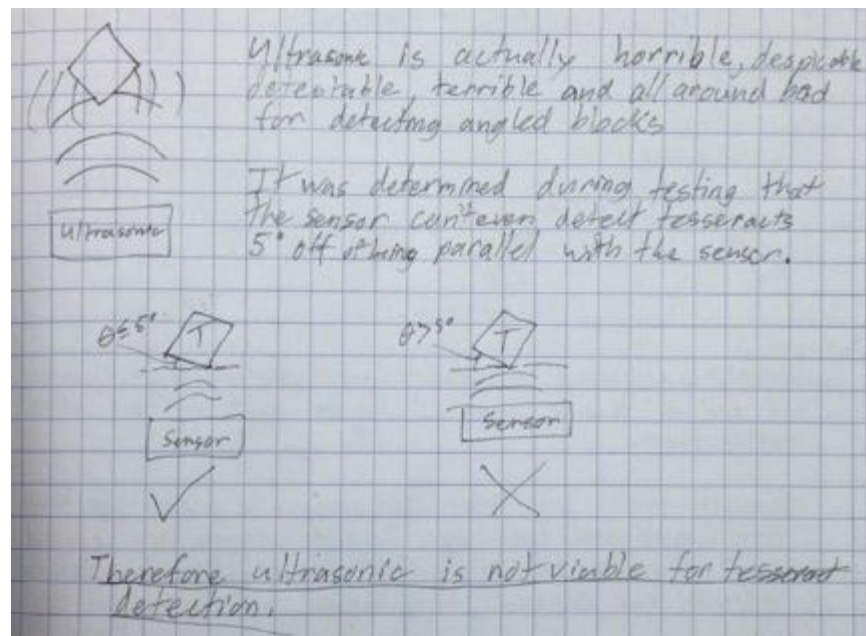 Ultrasonic is actually horrible, despicable
detestable, terrible and all around bad
for detecting angled blocks
It was determined during testing that
the sensor can't even detect tesseracts
5° off of being parallel with the sensor.
Ultrasonic
θ≤5°
T
Sensor
θ>5°
T
Sensor
Therefore ultrasonic is not viable for tesseract
detection.